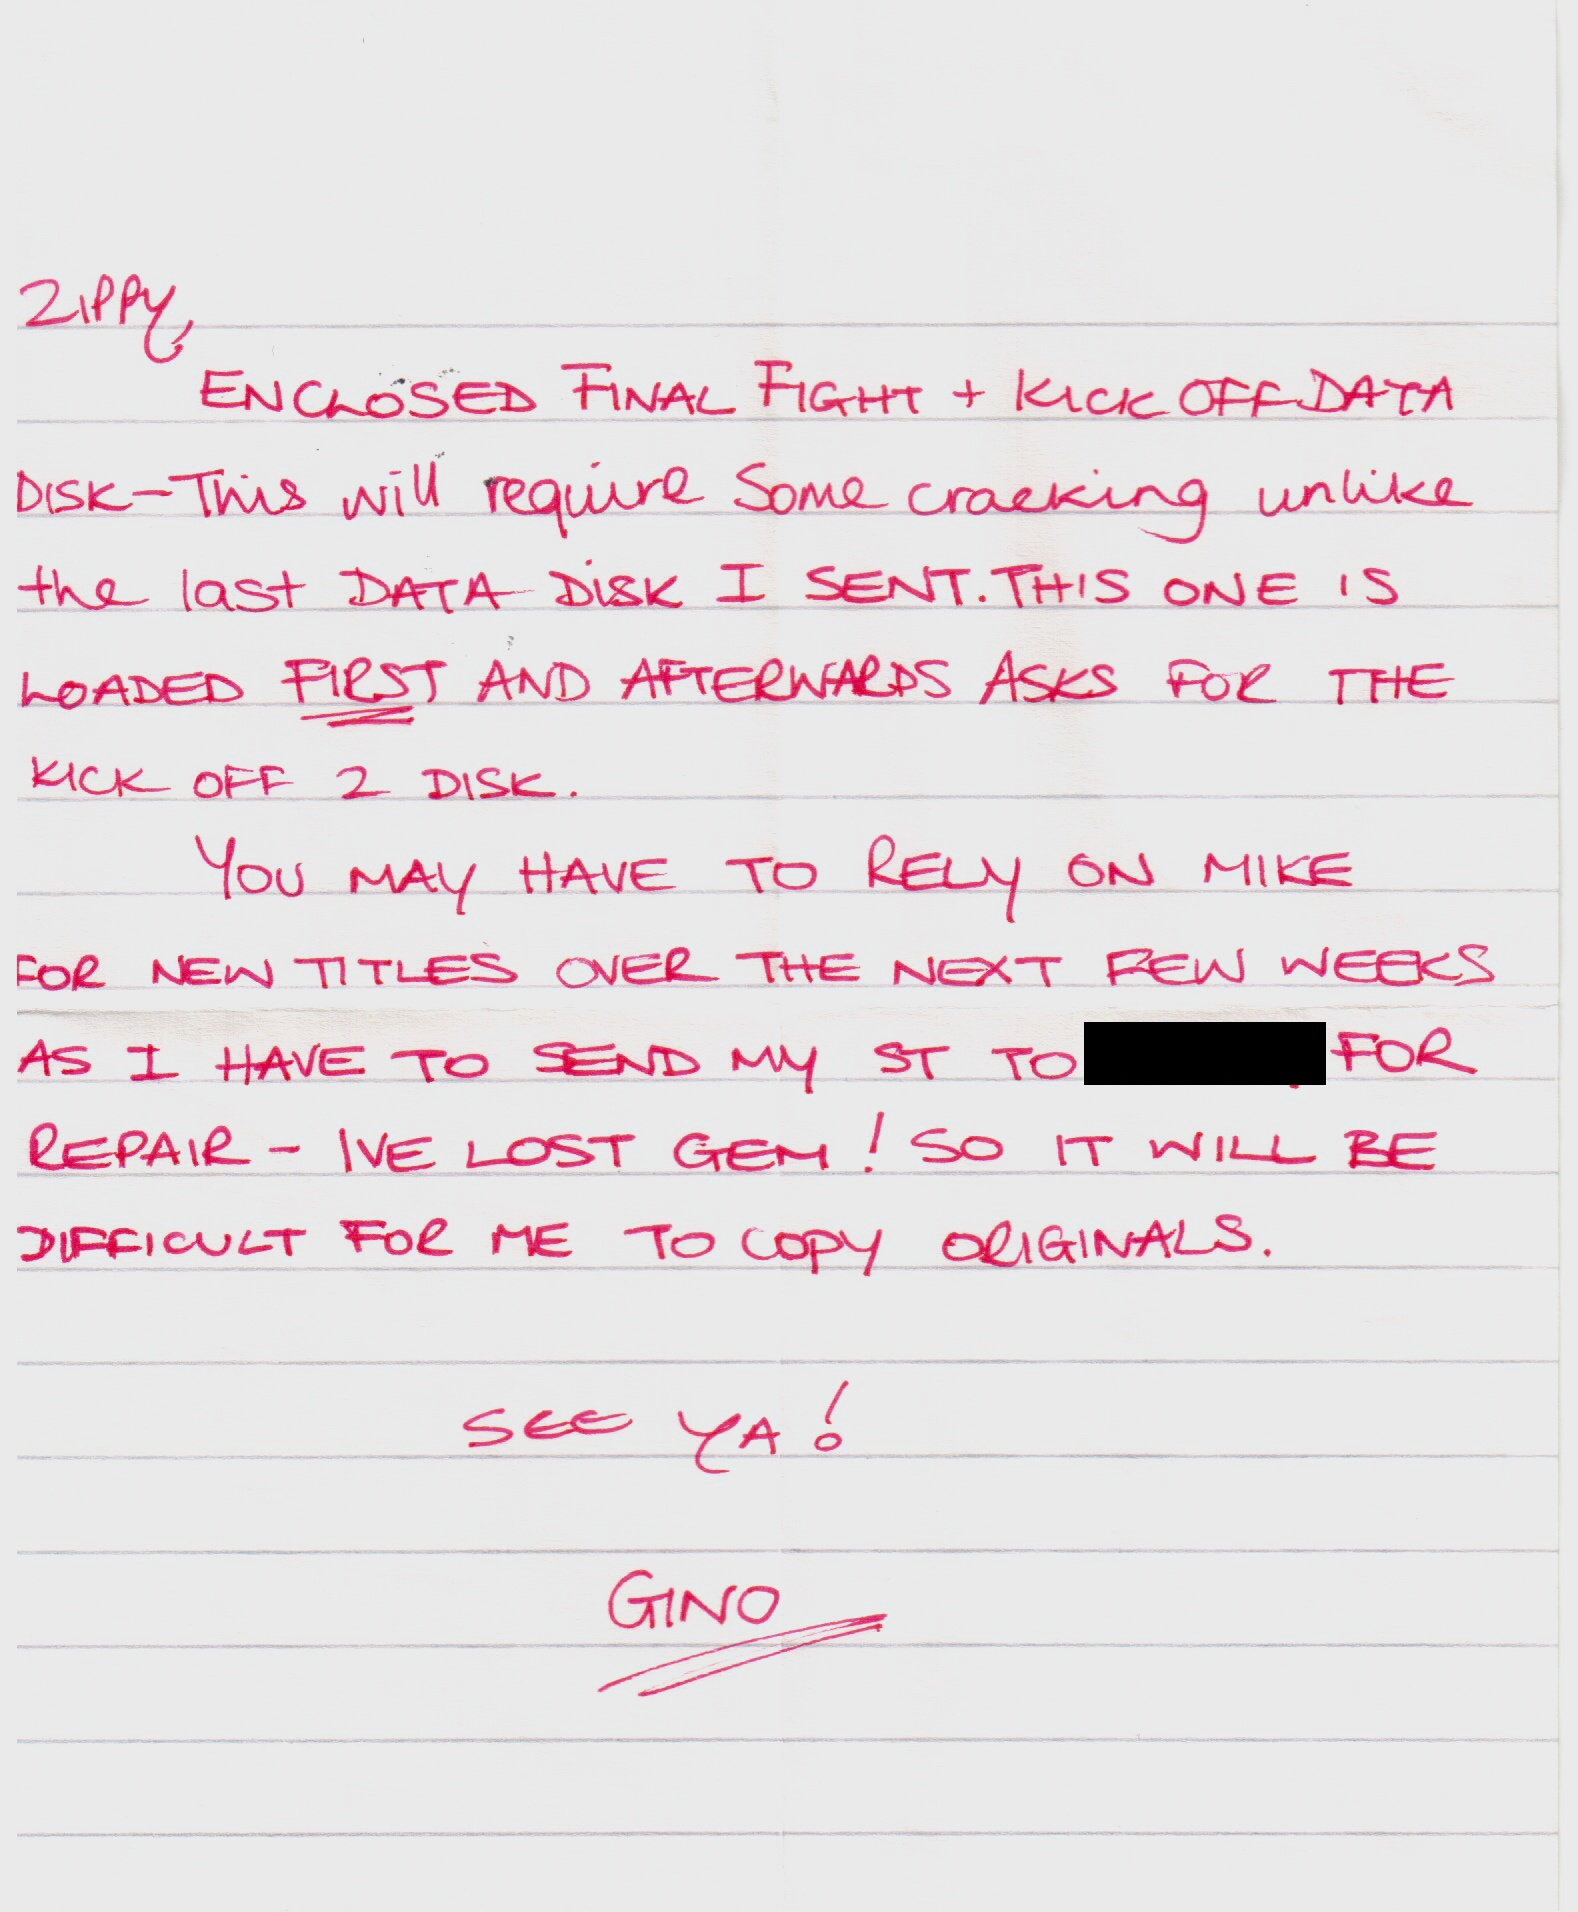 ZIPPY,
ENCLOSED FINAL FIGHT + KICK OFF DATA
DISK - This will require some cracking unlike
the last DATA DISK I SENT. THIS ONE IS
LOADED FIRST AND AFTERWARDS ASKS FOR THE
KICK OFF 2 DISK.
YOU MAY HAVE TO RELY ON MIKE
FOR NEW TITLES OVER THE NEXT FEW WEEKS
AS I HAVE TO SEND MY ST TO FOR
REPAIR - IVE LOST GEM! SO IT WILL BE
DIFFICULT FOR ME TO COPY ORIGINALS.
SEE YA!
GINO